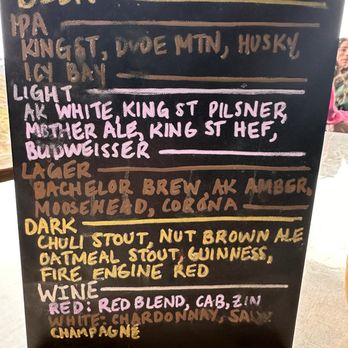 BEER
IPA
KING ST, DUDE MTN, HUSKY,
ICY BAY
LIGHT
AK WHITE, KING ST PILSNER,
MOTHER ALE, KING ST HEF,
BUDWEISSER
LAGER
BACHELOR BREW, AK AMBER,
MOOSEHEAD, CORONA
DARK
CHULI STOUT, NUT BROWN ALE
OATMEAL STOUT, GUINNESS,
FIRE ENGINE RED
WINE
RED: RED BLEND, CAB, ZIN
WHITE: CHARDONNAY,
CHAMPAGNE